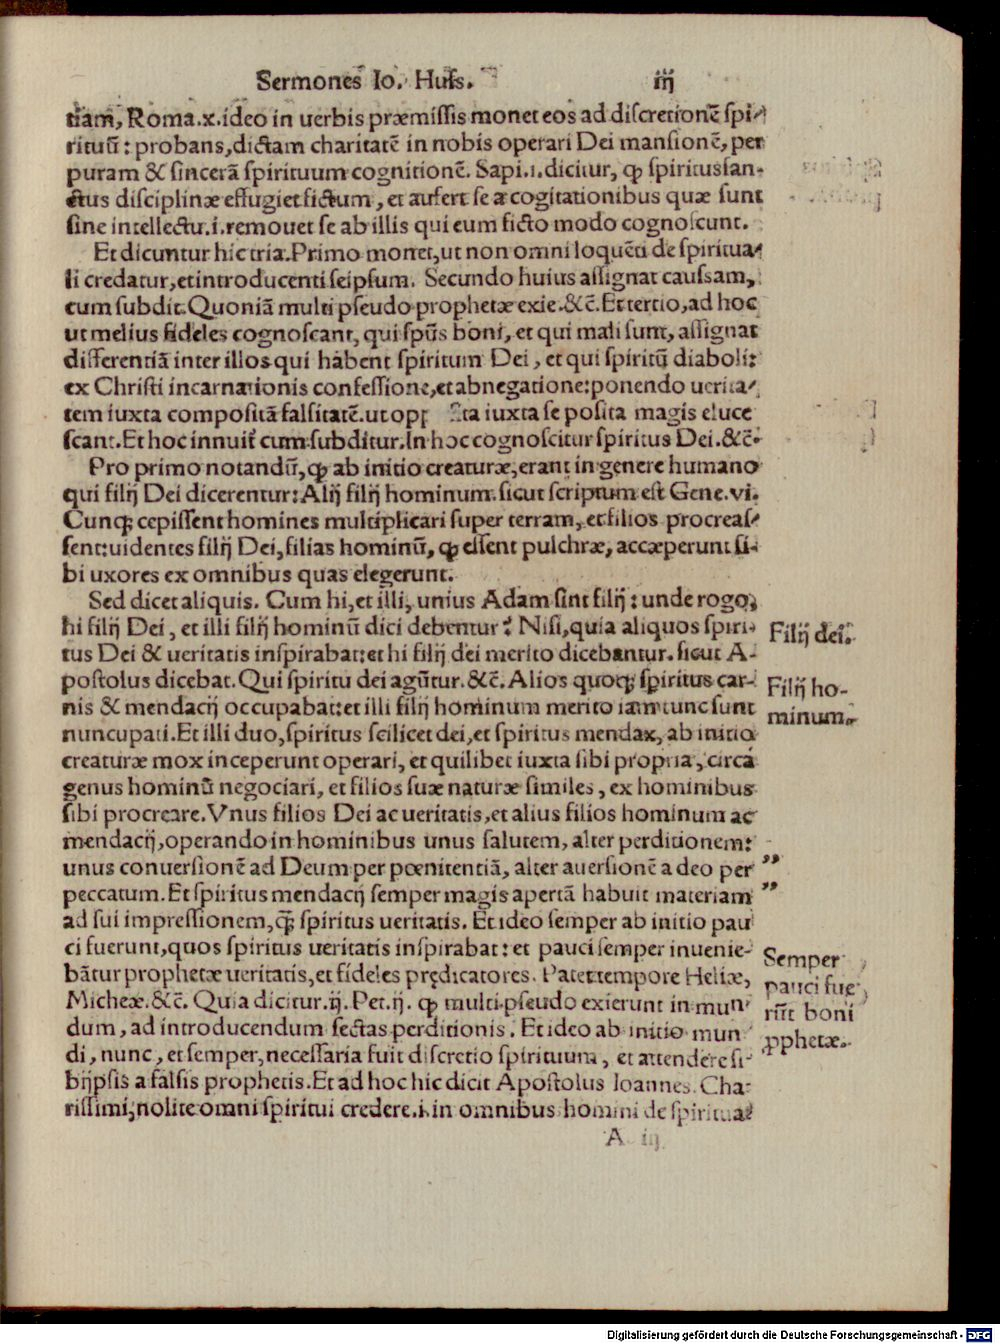 Sermones Io. Huſs. iij
tiam, Roma.x.ideo in uerbis præmiſſis monet eos ad diſcretionẽ ſpi-
rituũ: probans, dictam charitatẽ in nobis operari Dei manſionẽ, per
puram & ſincerã ſpirituum cognitionẽ. Sapi.i.dicitur, ꝙ ſpiritusſan-
ctus diſciplinæ effugiet fictum, et aufert ſe a cogitationibus quæ ſunt
ſine intellectu.i.remouet ſe ab illis qui eum ficto modo cognoſcunt.
Et dicuntur hic tria.Primo monet, ut non omni loquẽti de ſpiritua-
li credatur, et introducenti ſeipſum. Secundo huius aſſignat cauſſam,
cum ſubdit.Quoniã multi pſeudo prophetæ exie.&c̃.Et tertio, ad hoc
ut melius fideles cognoſcant, qui ſpũs boni, et qui mali ſunt, aſſignat
differentiã inter illos qui habent ſpiritum Dei, et qui ſpiritũ diaboli:
ex Chriſti incarnationis confeſſione, et abnegatione: ponendo uerita-
tem iuxta compoſitã falſitatẽ.ut opp ſita iuxta ſe poſita magis eluce
ſcant.Et hoc innuit cum ſubditur.In hoc cognoſcitur ſpiritus Dei.&c̃.
Pro primo notandũ, ꝙ ab initio creaturæ, erant in genere humano
qui filij Dei dicerentur: Alij filij hominum.ſicut ſcriptum eſt Gene.vi.
Cunq; cepiſſent homines multiplicari ſuper terram, et filios procreaſ-
ſent: uidentes filij Dei, filias hominũ, ꝙ eſſent pulchræ, accæperunt ſi-
bi uxores ex omnibus quas elegerunt.
Sed dicet aliquis. Cum hi, et illi, unius Adam ſint filij: unde rogo,
hi filij Dei, et illi filij hominũ dici debentur? Niſi, quia aliquos ſpiri-
tus Dei & ueritatis inſpirabat: et hi filij dei merito dicebantur.ſicut A-
poſtolus dicebat.Qui ſpiritu dei agũtur.&c̃.Alios quoq; ſpiritus car-
nis & mendacij occupabat: et illi filij hominum merito iam tunc ſunt
nuncupati.Et illi duo, ſpiritus ſcilicet dei, et ſpiritus mendax, ab initio
creaturæ mox inceperunt operari, et quilibet iuxta ſibi propria, circa
genus hominũ negociari, et filios ſuæ naturæ ſimiles, ex hominibus
ſibi procreare.Vnus filios Dei ac ueritatis, et alius filios hominum ac
mendacij, operando in hominibus unus ſalutem, alter perditionem:
unus conuerſionẽ ad Deum per pœnitentiã, alter auerſionẽ a deo per
peccatum.Et ſpiritus mendacij ſemper magis apertã habuit materiam
ad ſui impreſſionem, q̃ ſpiritus ueritatis. Et ideo ſemper ab initio pau
ci fuerunt, quos ſpiritus ueritatis inſpirabat: et pauci ſemper inuenie-
bãtur prophetæ ueritatis, et fideles prędicatores. Patet tempore Heliæ,
Micheæ.&c̃. Quia dicitur.ij.Pet.ij. ꝙ multi pſeudo exierunt in mun
dum, ad introducendum ſectas perditionis. Et ideo ab initio mun
di, nunc, et ſemper, neceſſaria fuit diſcretio ſpirituum, et attendere ſi-
bijpſis a falſis prophetis.Et ad hoc hic dicit Apoſtolus Ioannes. Cha-
riſſimi, nolite omni ſpiritui credere.i.in omnibus homini de ſpiritua-
A iij
Filij dei.
Filij ho-
minum.
”
”
Semper
pauci fue
rũt boni
ꝓphetæ.
Digitalisierung gefördert durch die Deutsche Forschungsgemeinschaft - DFG